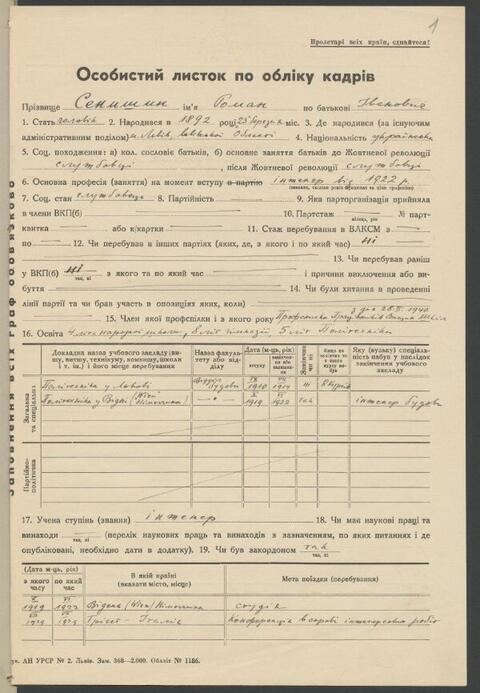 1
Пролетарі всіх країн, єднайтеся!
Особистий листок по обліку кадрів
Прізвище Сенишин ім'я Роман по батькові Іванович
1. Стать чоловік 2. Народився в 1892 році 23 Березня міс. 3. Де народився (за існуючим
адміністративним поділом) м. Львів, Львівської Області 4. Національність українська
5. Соц. походження: а) кол. сословіє батьків, б) основне заняття батьків до Жовтневої революції
службовці, після Жовтневої революції службовці
6. Основна професія (заняття) на момент вступу в партію інженер від 1922 р.
7. Соц. стан службовець 8. Партійність — 9. Яка парторганізація прийняла
в члени ВКП(б) — 10. Партстаж — № парт-
місяць, рік
квитка — або к/картки — 11. Стаж перебування в ВЛКСМ з —
по — 12. Чи перебував в інших партіях (яких, де, з якого і по який час) ні
13. Чи перебував раніш
у ВКП(б) ні з якого та по який час — і причини виключення або ви-
так, ні
буття — 14. Чи були хитання в проведенні
лінії партії та чи брав участь в опозиціях яких, коли) —
15. Член якої профспілки і з якого року
16. Освіта 4 літ. народної школи, 8 літ гімназії 5 літ Політехніки
Докладна назва учбового закладу (ви-
шу, втишу, технікуму, комвишу, школи
і т. ін.) і його місце перебування
Назва факуль-
тету або від-
ділу
Дата (м-ць, рік)
вступу
Закінчив
чи ні
Яку (вузьку) спеціаль-
ність набув у наслідок
закінчення учбового
закладу
Загальна
та спеціальна
Політехніка у Львові 1910 1914 ні
Політехніка у Відні (Wien) Німеччина —"— 1919 1922 так інженер Будови
Партійно-
політична
17. Учена ступінь (звання) інженер 18. Чи має наукові праці та
винаходи — (перелік наукових праць та винаходів з зазначенням, по яких питаннях і де
так, ні
опубліковані, необхідно дати в додатку). 19. Чи був закордоном так
так, ні
(Дата м-ць, рік)
з якого
часу
по який
час
В якій країні
(вказати місто, місце)
Мета поїздки (перебування)
1919 1922 Відень (Wien) Німеччина студії
1929 1929 Трієст - Італія Конференція в справі інженерських робіт
Заповнення всіх граф обов'язково
АН УРСР № 2. Львів. Зам. 368—2.000. Обліт № 1186.